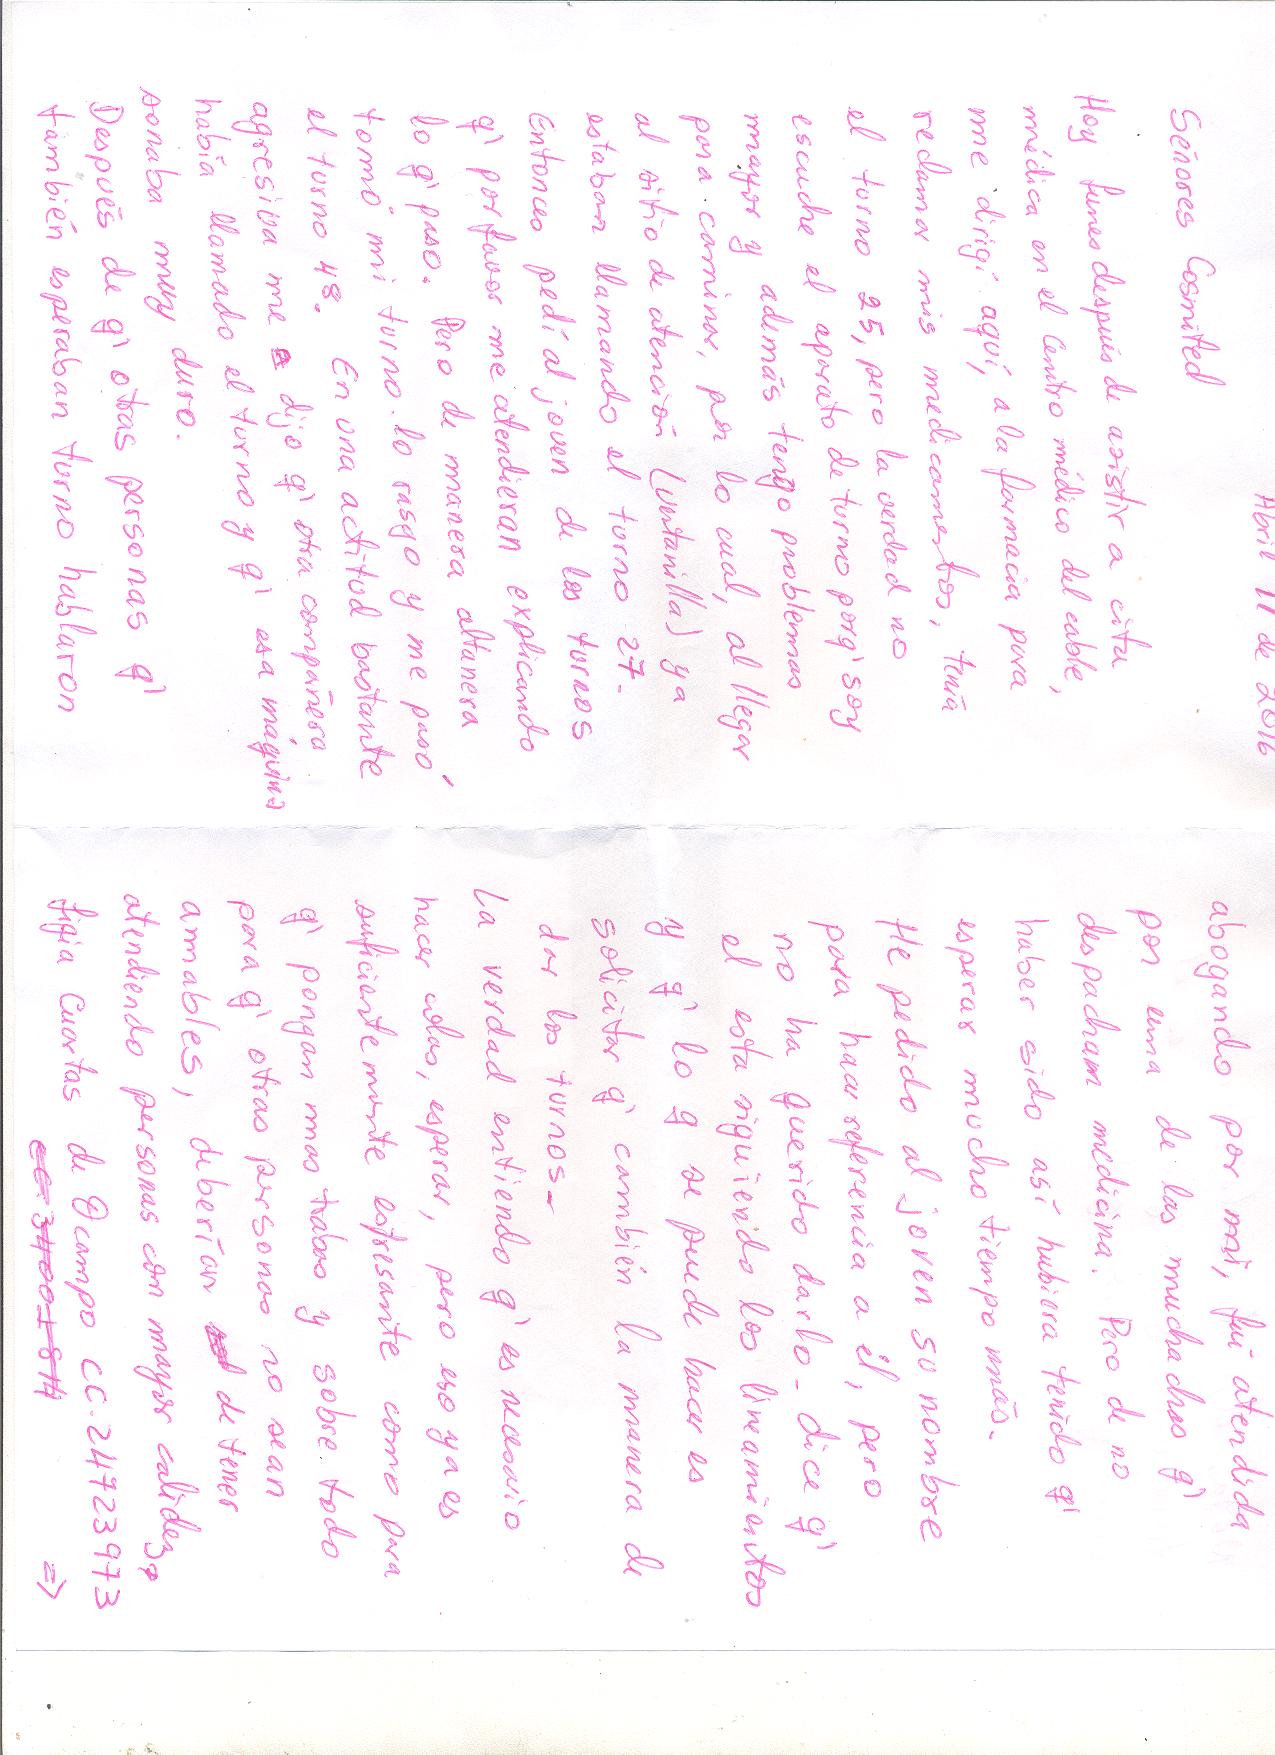 Abril 11 de 2016
Señores Cosmited
Hoy lunes después de asistir a cita
médica en el Centro médico del cable,
me dirigí aquí, a la farmacia para
reclamar mis medicamentos, tenía
el turno 25, pero la verdad no
escuche el aparato de turno porq' soy
mayor y además tengo problemas
para caminar, por lo cual, al llegar
al sitio de atención (ventanilla) ya
estaban llamando el turno 27-
Entonces pedí al joven de los turnos
q' por favor me atendieran explicando
lo q' paso. Pero de manera altanera
tomó mi turno. lo rasgo y me pasó
el turno 48. En una actitud bastante
agresiva me dijo q' otra compañera
había llamado el turno y q' esa máquina
sonaba muy duro.
Después de q' otras personas q'
también esperaban turno hablaron
abogando por mi, fui atendida
por una de las muchachas q'
despacham medicina. Pero de no
haber sido así hubiera tenido q'
esperar mucho tiempo más-
He pedido al joven su nombre
para hacer referencia a él, pero
no ha querido darlo- dice q'
el esta siguiendo los lineamientos
y q' lo q se puede hacer es
solicitar q' cambién la manera de
dar los turnos-
La verdad entiendo q' es necesario
hacer colas, esperar, pero eso ya es
suficientemente estresante como para
q' pongan mas trabas y sobre todo
para q' otras personas no sean
amables, deberían de tener
atendiendo personas con mayor calidez.
Ligia Cuartas de Ocampo CC. 24723973
=>